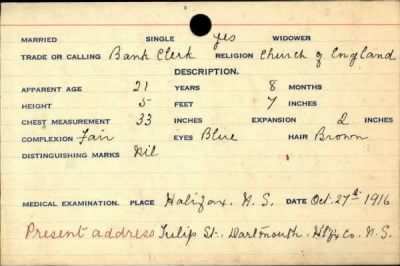 MARRIED SINGLE yes WIDOWER
TRADE OR CALLING Bank Clerk RELIGION Church of England
DESCRIPTION.
APPARENT AGE 21 YEARS 8 MONTHS
HEIGHT 5 FEET 7 INCHES
CHEST MEASUREMENT 33 INCHES EXPANSION 2 INCHES
COMPLEXION Fair EYES Blue HAIR Brown
DISTINGUISHING MARKS Nil
MEDICAL EXAMINATION. PLACE Halifax. N.S. DATE Oct. 27th 1916
Present address Tulip St. Dartmouth. Hfx Co. N.S.